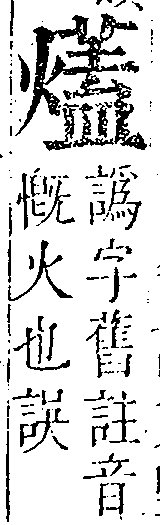 譌字舊註音
慨火也誤